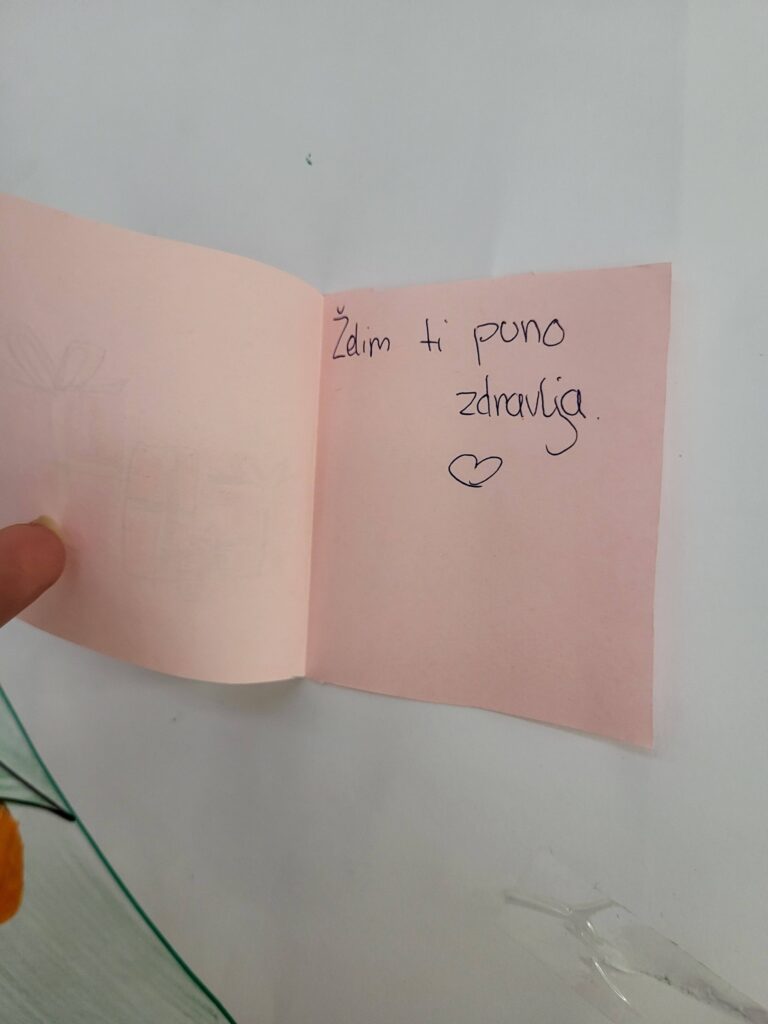 Ždim ti puno
zdravlja.